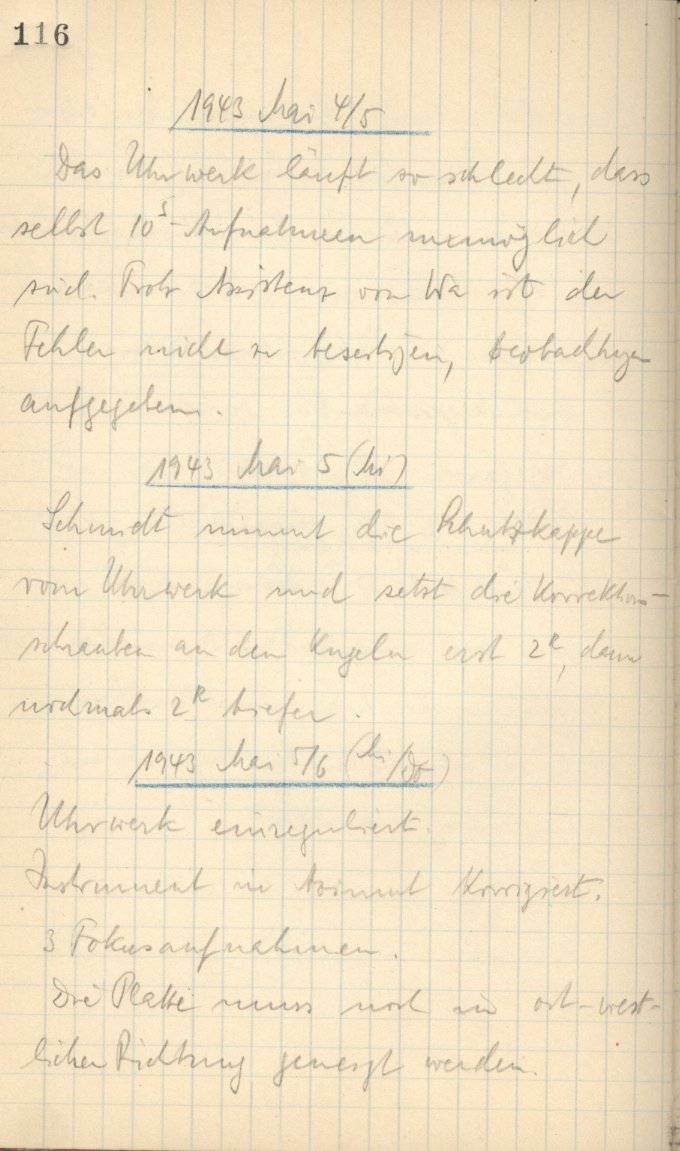 116
1943 Mai 4/5
Das Uhrwerk läuft so schlecht, dass
selbst 10ˢ-Aufnahmen unmöglich
sind. Trotz Assistenz von Wa ist der
Fehler nicht zu beseitigen, Beobachtungen
aufgegeben.
1943 Mai 5 (Mi)
Schmidt nimmt die Schutzkappe
vom Uhrwerk und setzt die Korrektions-
schrauben an den Kugeln erst 2ᴿ, dann
nochmals 2ᴿ tiefer.
1943 Mai 5/6 (Mi/Do)
Uhrwerk einreguliert.
Instrument in Azimut korrigiert.
3 Fokusaufnahmen.
Die Platte muss noch in ost-west-
licher Richtung geneigt werden.